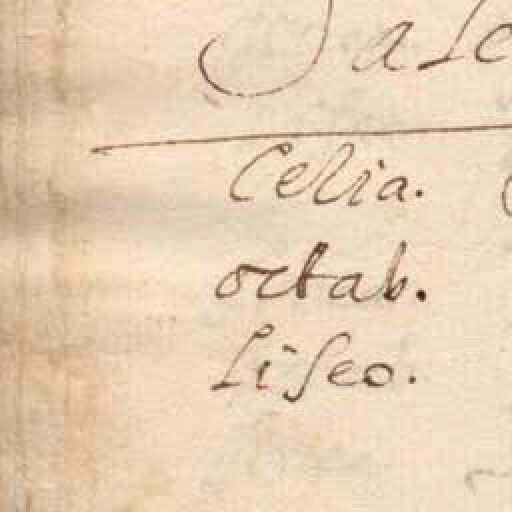 Salc
Celia.
octab.
Liseo.